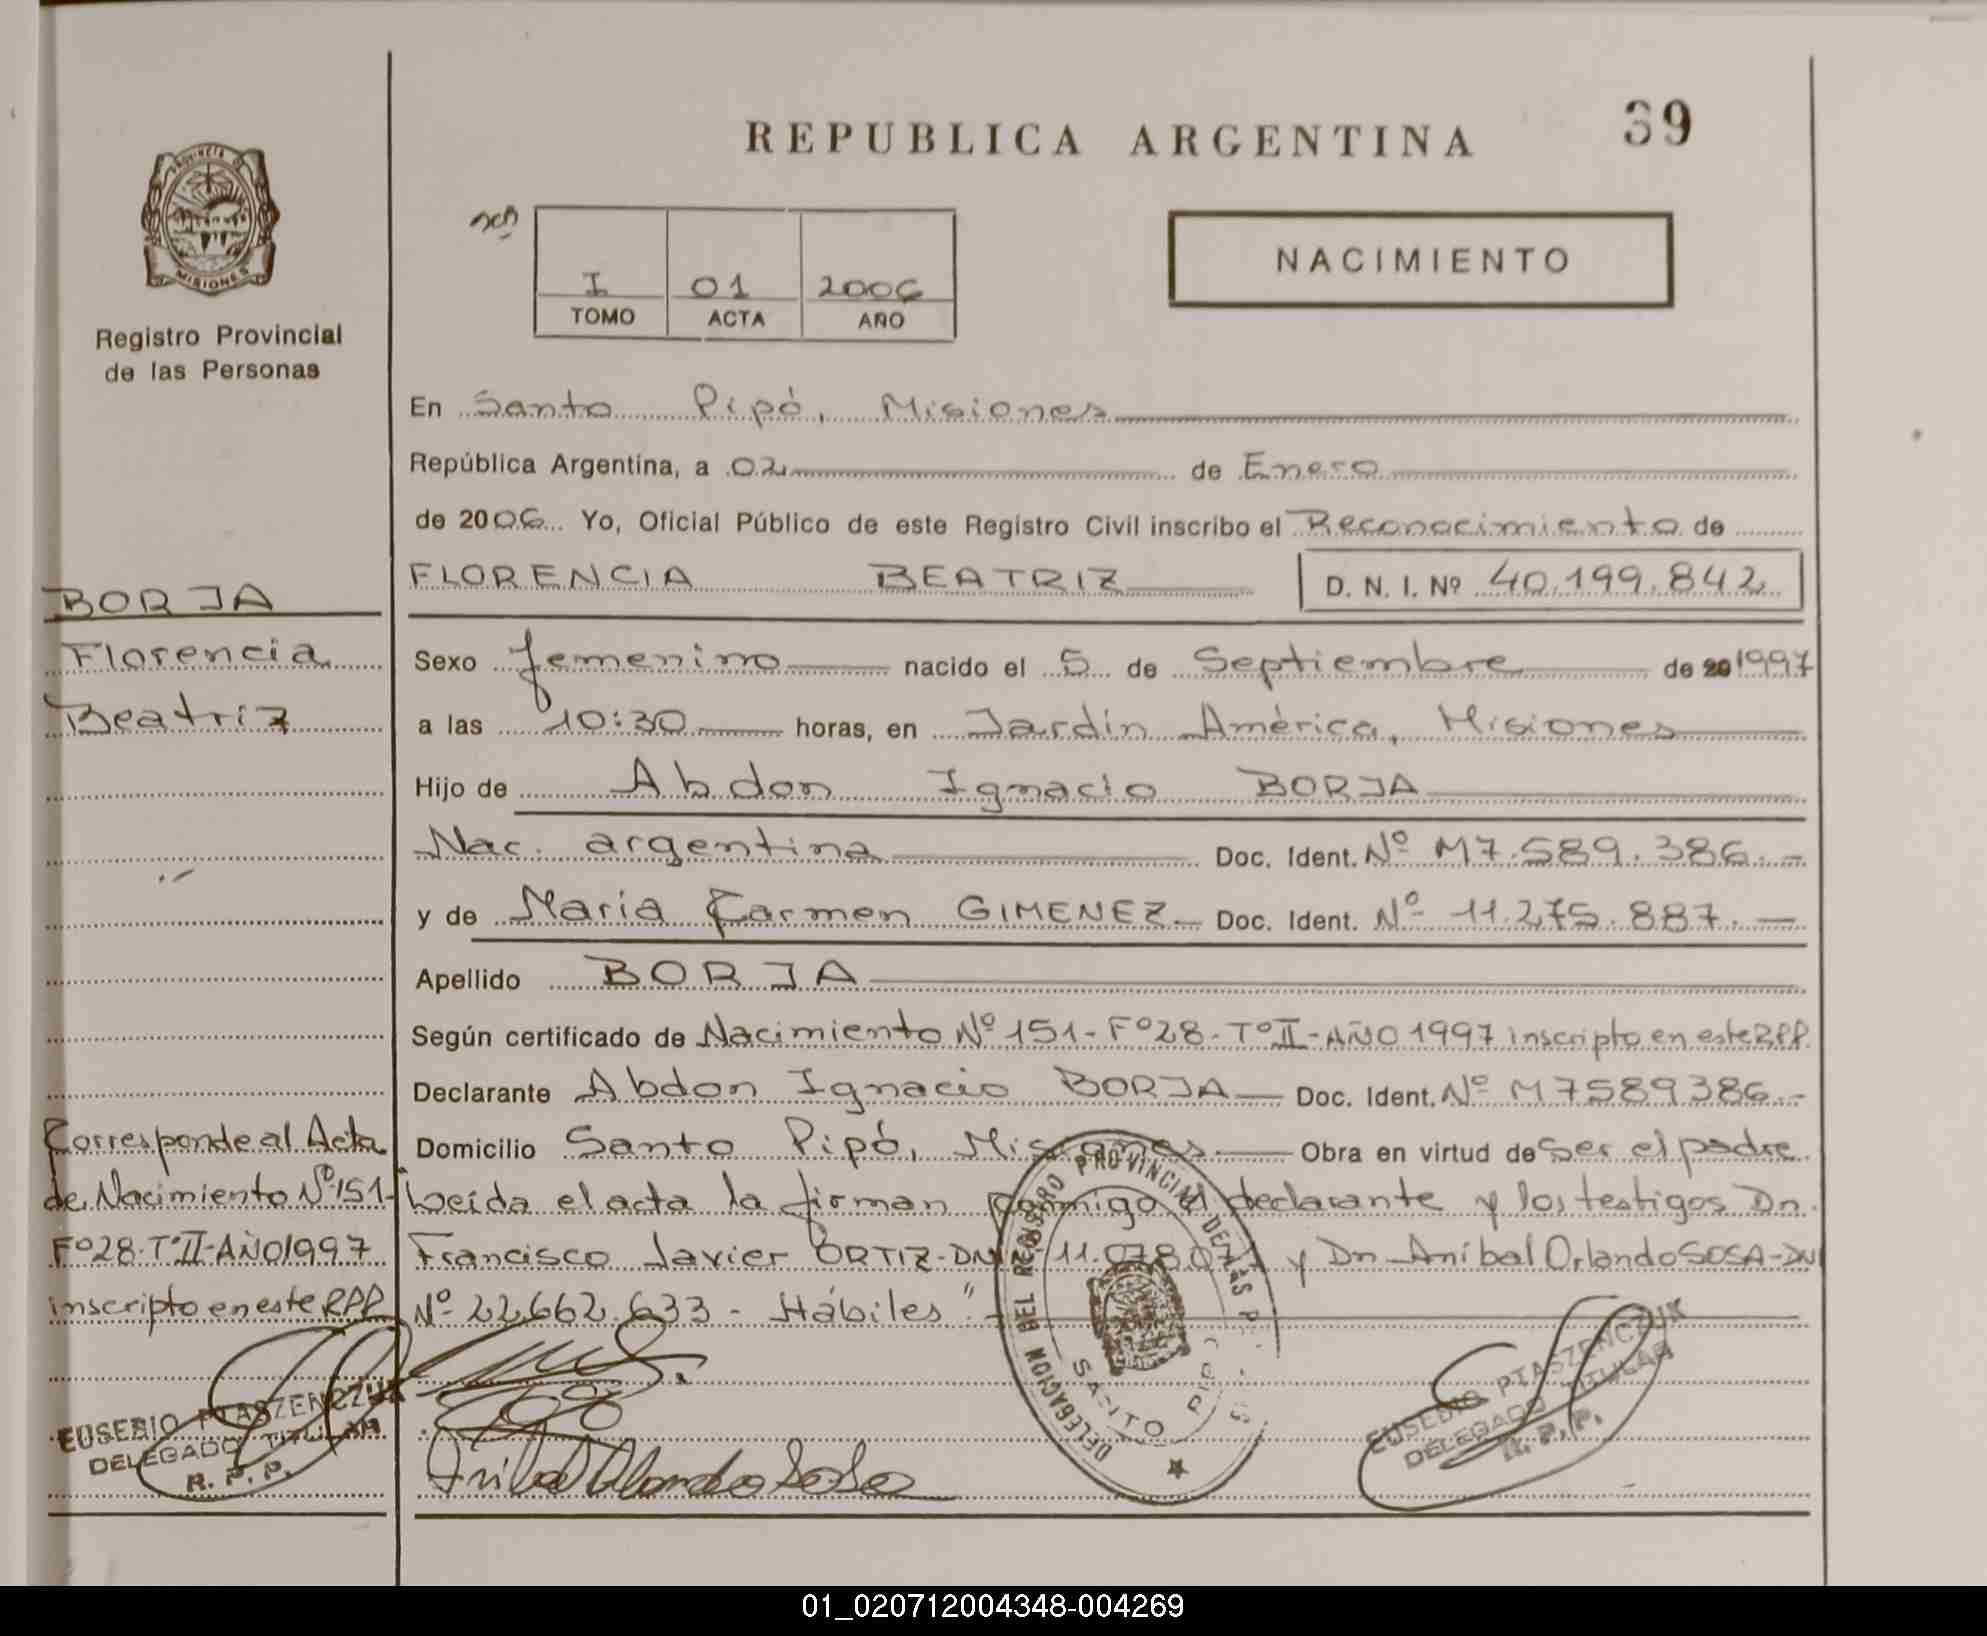 REPUBLICA ARGENTINA
39
PROVINCIA DE
MISIONES
Registro Provincial
de las Personas
I 01 2006
TOMO ACTA AÑO
NACIMIENTO
En Santo Pipó, Misiones
República Argentina, a 02 de Enero
de 2006 Yo, Oficial Público de este Registro Civil inscribo el Reconocimiento de
FLORENCIA BEATRIZ D. N. I. Nº 40.199.842
Sexo femenino nacido el 5 de Septiembre de 20 1997
a las 10:30 horas, en Jardín América, Misiones
Hijo de Abdon Ignacio BORJA
Nac. argentina Doc. Ident. Nº M7.589.386.-
y de Maria Carmen GIMENEZ Doc. Ident. Nº 11.275.887.-
Apellido BORJA
Según certificado de Nacimiento Nº 151- Fº28- TºII- AÑO 1997 inscripto en este RPP.
Declarante Abdon Ignacio BORJA Doc. Ident. Nº M7589386.-
Domicilio Santo Pipó, Misiones Obra en virtud de ser el padre.
Leída el acta la firman conmigo el declarante y los testigos Dn.
Francisco Javier ORTIZ-DNI 11.078.0 y Dn Aníbal Orlando SOSA-DNI
Nº 22.662.633 - Hábiles"
BORJA
Florencia
Beatriz
Corresponde al Acta
de Nacimiento Nº151-
Fº28-TºII-AÑO1997
inscripto en este RPP
EUSEBIO PTASZENCZUK
DELEGADO TITULAR
R. P. P.
Anibal Orlando Sosa
DELEGACION DEL REGISTRO PROVINCIAL DE LAS P
SANTO PIPO
EUSEBIO PTASZENCZUK
DELEGADO TITULAR
R. P. P.
01_020712004348-004269